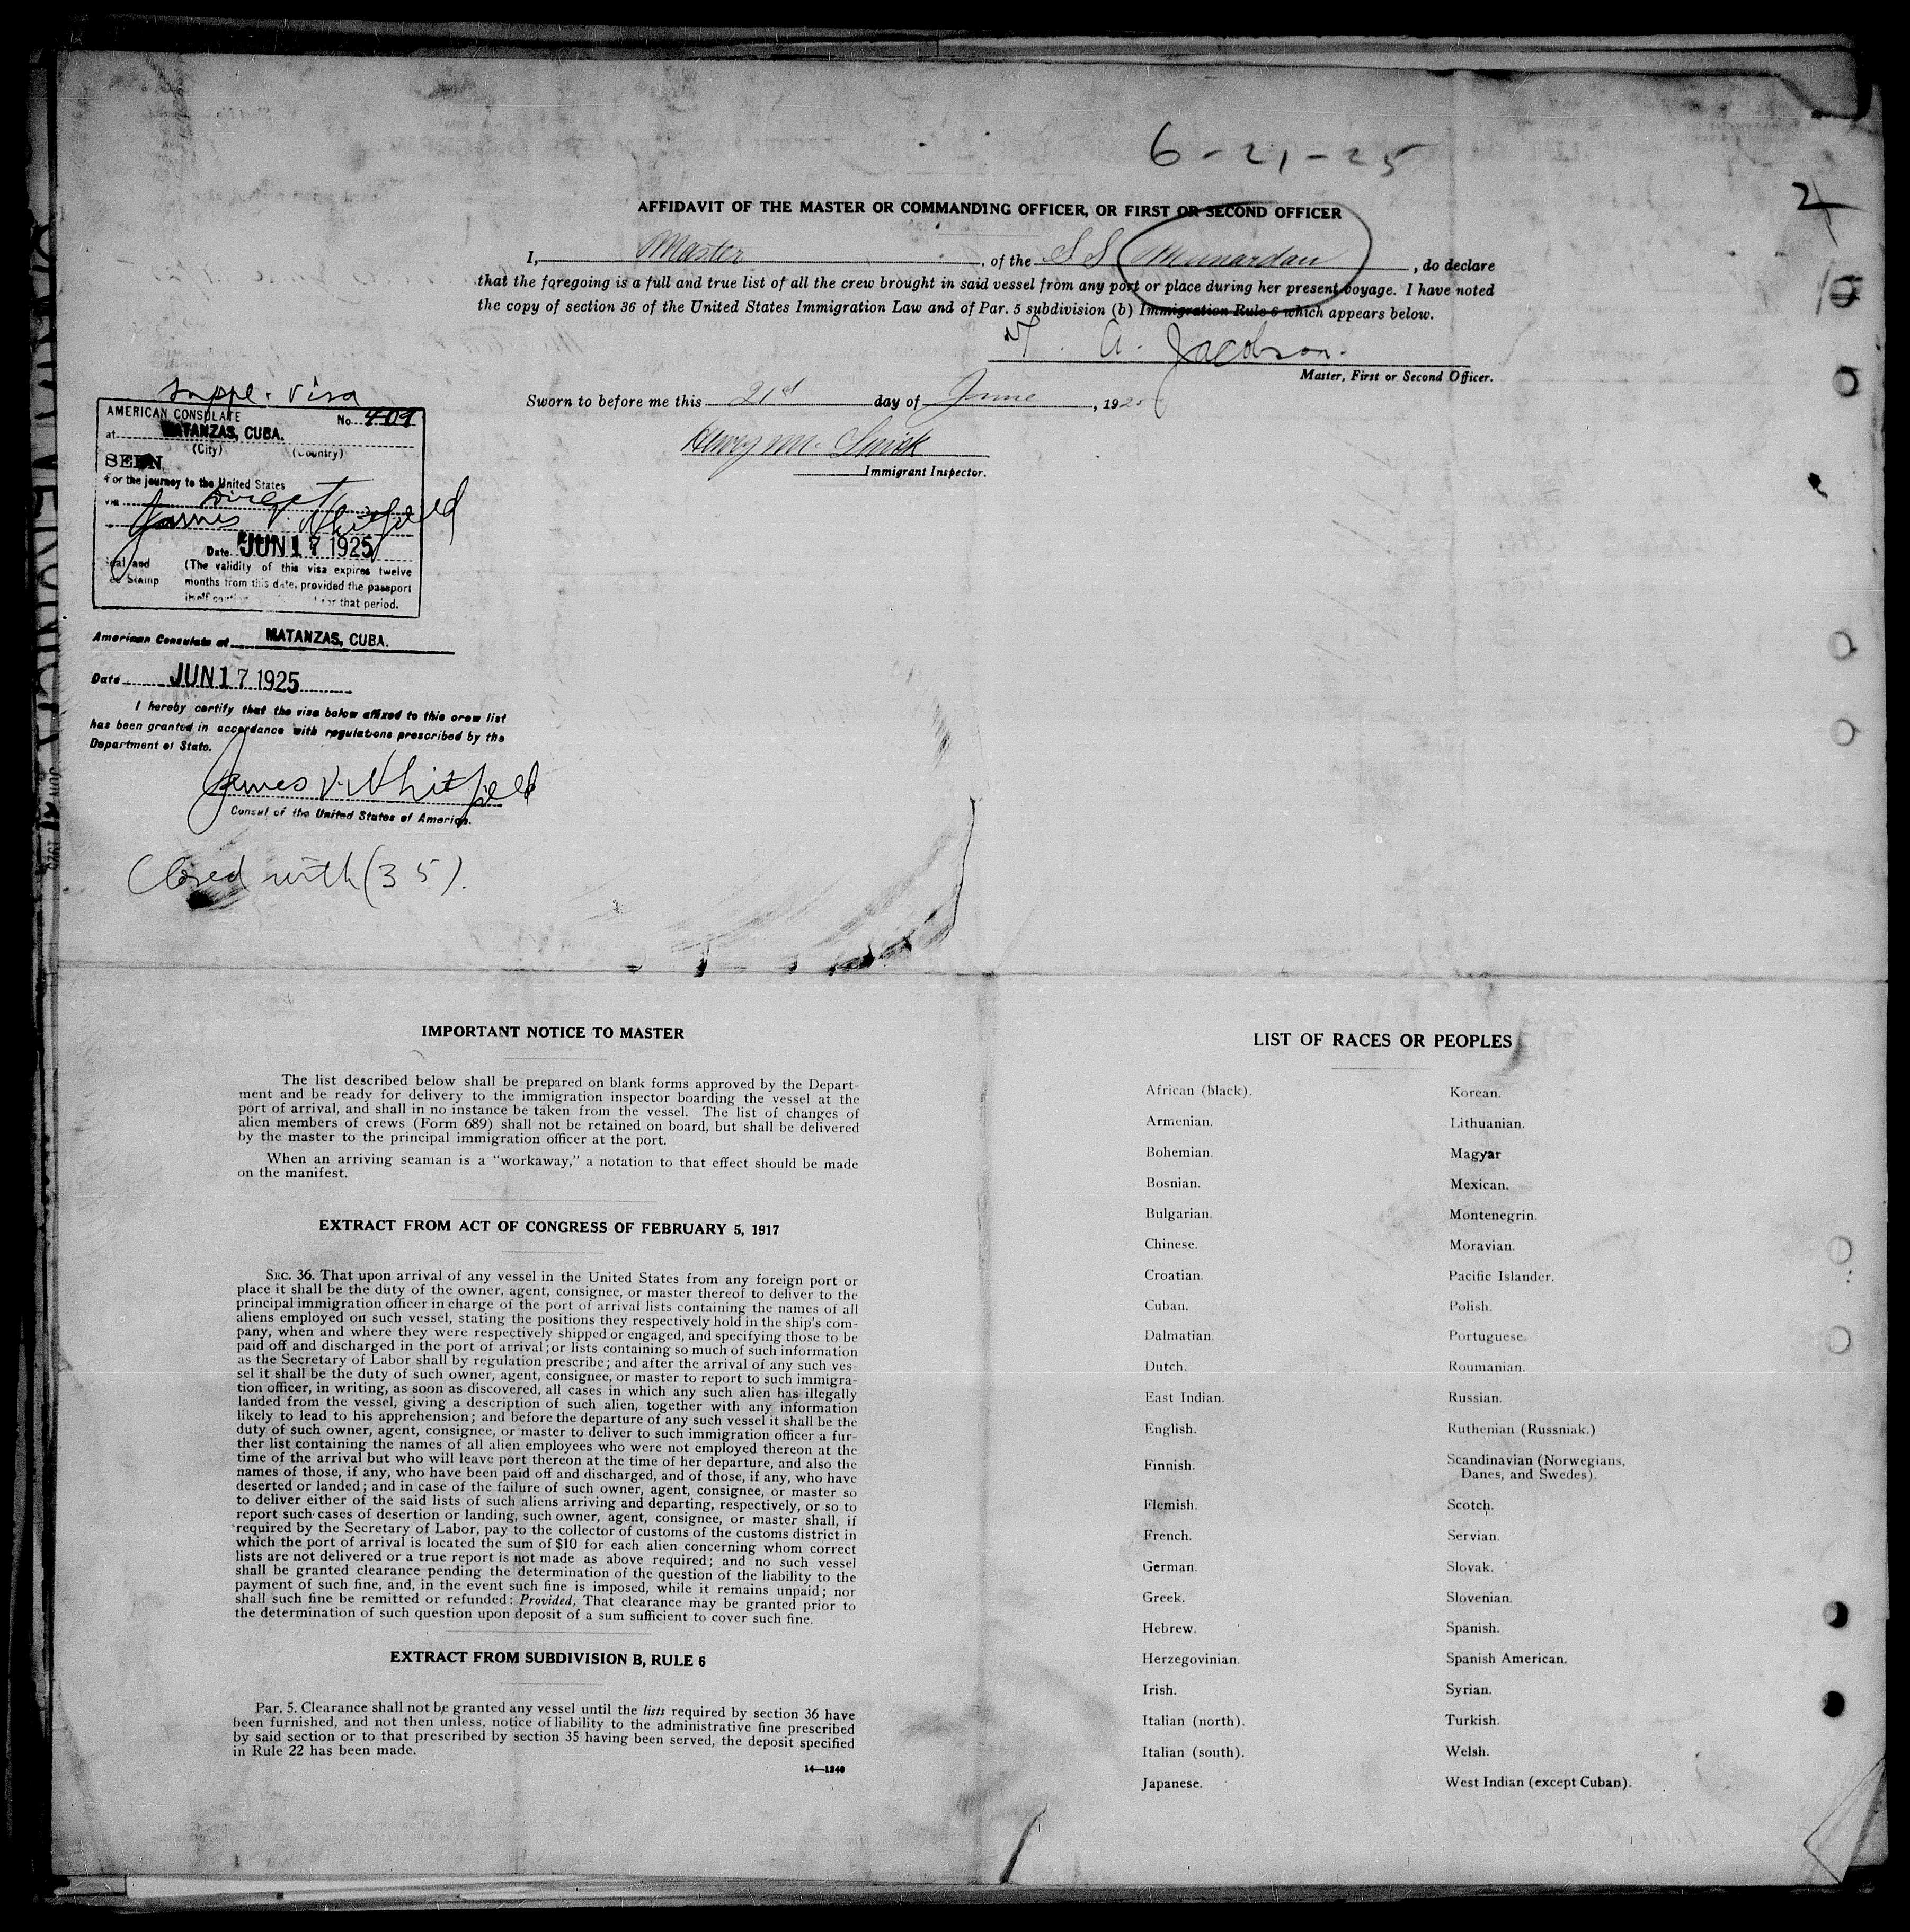 6-21-25
2
AFFIDAVIT OF THE MASTER OR COMMANDING OFFICER, OR FIRST OR SECOND OFFICER
I, Master, of the SS Munardan, do declare
that the foregoing is a full and true list of all the crew brought in said vessel from any port or place during her present voyage. I have noted
the copy of section 36 of the United States Immigration Law and of Par. 5 subdivision (b) Immigration Rule 6 which appears below.
A. Jacobson.
Master, First or Second Officer.
Sworn to before me this 21st day of June, 1925
Immigrant Inspector.
suppl. visa
AMERICAN CONSULATE No. 409
at MATANZAS, CUBA.
(City) (Country)
SEEN
For the journey to the United States
via Direct
James V. Whitfield
Date JUN 17 1925
Seal and (The validity of this visa expires twelve
Stamp months from this date, provided the passport
itself for that period.
American Consulate at MATANZAS, CUBA.
Date JUN 17 1925
I hereby certify that the visa below affixed to this crew list
has been granted in accordance with regulations prescribed by the
Department of State.
James V. Whitfield
Consul of the United States of America.
Closed with (35).
IMPORTANT NOTICE TO MASTER
The list described below shall be prepared on blank forms approved by the Depart-
ment and be ready for delivery to the immigration inspector boarding the vessel at the
port of arrival, and shall in no instance be taken from the vessel. The list of changes of
alien members of crews (Form 689) shall not be retained on board, but shall be delivered
by the master to the principal immigration officer at the port.
When an arriving seaman is a "workaway," a notation to that effect should be made
on the manifest.
EXTRACT FROM ACT OF CONGRESS OF FEBRUARY 5, 1917
SEC. 36. That upon arrival of any vessel in the United States from any foreign port or
place it shall be the duty of the owner, agent, consignee, or master thereof to deliver to the
principal immigration officer in charge of the port of arrival lists containing the names of all
aliens employed on such vessel, stating the positions they respectively hold in the ship's com-
pany, when and where they were respectively shipped or engaged, and specifying those to be
paid off and discharged in the port of arrival; or lists containing so much of such information
as the Secretary of Labor shall by regulation prescribe; and after the arrival of any such ves-
sel it shall be the duty of such owner, agent, consignee, or master to report to such immigra-
tion officer, in writing, as soon as discovered, all cases in which any such alien has illegally
landed from the vessel, giving a description of such alien, together with any information
likely to lead to his apprehension; and before the departure of any such vessel it shall be the
duty of such owner, agent, consignee, or master to deliver to such immigration officer a fur-
ther list containing the names of all alien employees who were not employed thereon at the
time of the arrival but who will leave port thereon at the time of her departure, and also the
names of those, if any, who have been paid off and discharged, and of those, if any, who have
deserted or landed; and in case of the failure of such owner, agent, consignee, or master so
to deliver either of the said lists of such aliens arriving and departing, respectively, or so to
report such cases of desertion or landing, such owner, agent, consignee, or master shall, if
required by the Secretary of Labor, pay to the collector of customs of the customs district in
which the port of arrival is located the sum of $10 for each alien concerning whom correct
lists are not delivered or a true report is not made as above required; and no such vessel
shall be granted clearance pending the determination of the question of the liability to the
payment of such fine, and, in the event such fine is imposed, while it remains unpaid; nor
shall such fine be remitted or refunded: Provided, That clearance may be granted prior to
the determination of such question upon deposit of a sum sufficient to cover such fine.
EXTRACT FROM SUBDIVISION B, RULE 6
Par. 5. Clearance shall not be granted any vessel until the lists required by section 36 have
been furnished, and not then unless, notice of liability to the administrative fine prescribed
by said section or to that prescribed by section 35 having been served, the deposit specified
in Rule 22 has been made.
14—1240
LIST OF RACES OR PEOPLES
African (black).
Armenian.
Bohemian.
Bosnian.
Bulgarian.
Chinese.
Croatian.
Cuban.
Dalmatian.
Dutch.
East Indian.
English.
Finnish.
Flemish.
French.
German.
Greek.
Hebrew.
Herzegovinian.
Irish.
Italian (north).
Italian (south).
Japanese.
Korean.
Lithuanian.
Magyar
Mexican.
Montenegrin.
Moravian.
Pacific Islander.
Polish.
Portuguese.
Roumanian.
Russian.
Ruthenian (Russniak.)
Scandinavian (Norwegians,
Danes, and Swedes).
Scotch.
Servian.
Slovak.
Slovenian.
Spanish.
Spanish American.
Syrian.
Turkish.
Welsh.
West Indian (except Cuban).